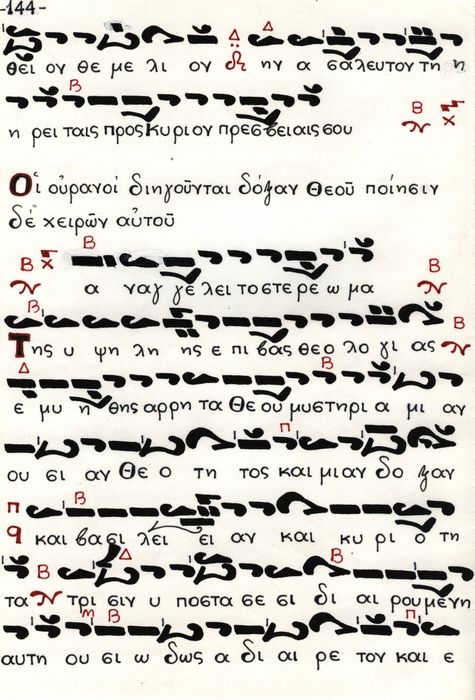 -144-
θει ον θε με λι ον ην α σαλευτον τη η
η ρει ταις προς κυριον πρεσβειαις σου
Οἱ οὐρανοί διηγοῦνται δόξαν Θεοῦ ποίησιν
δέ χειρῶν αὐτοῦ
α ναγ γε λει το στε ρε ω μα
Της υ ψη λη ης ε πι βας θεο λο γι ας
ε μυ η θης αρρη τα Θε ου μυστηρι α μι αν
ου σι αν Θε ο τη τος και μιαν δο ξαν
και βασι λει ει αν και κυ ρι ο τη
τα τρι σιν υ ποστα σε σι δι αι ρου μενη
αυτη ου σι ω δως α δι αι ρε τον και ε